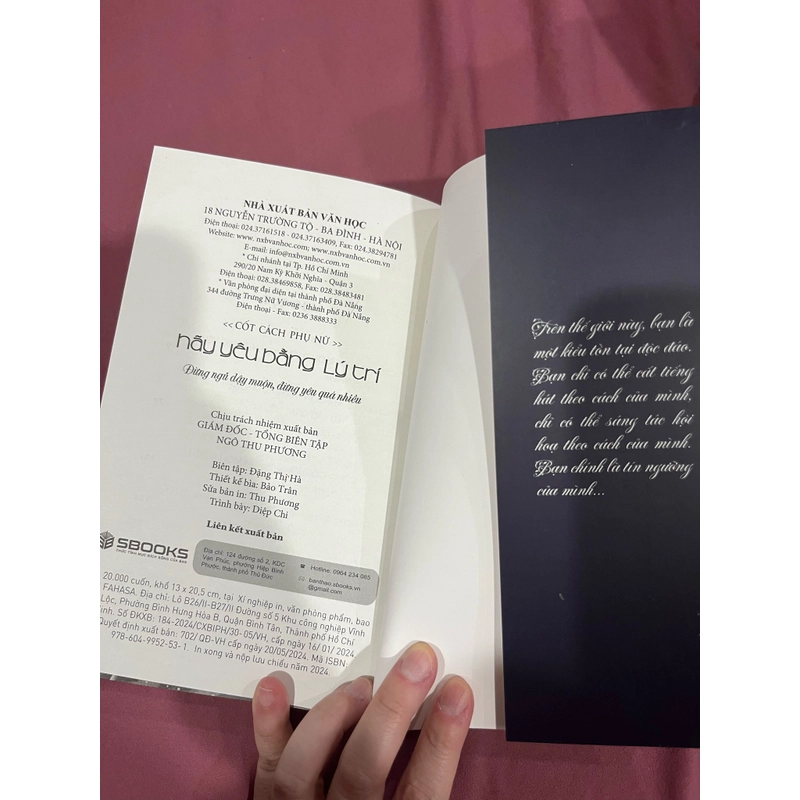 NHÀ XUẤT BẢN VĂN HỌC
18 NGUYỄN TRƯỜNG TỘ - BA ĐÌNH - HÀ NỘI
Điện thoại: 024.37161518 - 024.37163409, Fax: 024.38294781
Website: www. nxbvanhoc.com; www.nxbvanhoc.com.vn
E-mail: info@nxbvanhoc.com.vn
* Chi nhánh tại Tp. Hồ Chí Minh
290/20 Nam Kỳ Khởi Nghĩa - Quận 3
Điện thoại: 028.38469858, Fax: 028.38483481
* Văn phòng đại diện tại thành phố Đà Nẵng
344 đường Trưng Nữ Vương - thành phố Đà Nẵng
Điện thoại - Fax: 0236 3888333
<< CỐT CÁCH PHỤ NỮ >>
hãy yêu bằng Lý trí
Đừng ngủ dậy muộn, đừng yêu quá nhiều
Chịu trách nhiệm xuất bản
GIÁM ĐỐC - TỔNG BIÊN TẬP
NGÔ THU PHƯƠNG
Biên tập: Đặng Thị Hà
Thiết kế bìa: Bảo Trân
Sửa bản in: Thu Phương
Trình bày: Diệp Chi
Liên kết xuất bản
SBOOKS
THỨC TỈNH MỤC ĐÍCH SỐNG CỦA BẠN
Địa chỉ: 124 đường số 2, KDC
Vạn Phúc, phường Hiệp Bình
Phước, thành phố Thủ Đức
Hotline: 0964 234 065
banthao.sbooks.vn
@gmail.com
20.000 cuốn, khổ 13 x 20,5 cm, tại Xí nghiệp in, văn phòng phẩm, bao
FAHASA. Địa chỉ: Lô B26/II-B27/II Đường số 5 Khu công nghiệp Vĩnh
Lộc, Phường Bình Hưng Hòa B, Quận Bình Tân, Thành phố Hồ Chí
inh. Số ĐKXB: 184-2024/CXBIPH/30-05/VH, cấp ngày 16/ 01/ 2024
Quyết định xuất bản: 702/ QĐ-VH cấp ngày 20/05/2024. Mã ISBN:
978-604-9952-53-1. In xong và nộp lưu chiểu năm 2024.
Trên thế giới này, bạn là
một kiểu tồn tại độc đáo.
Bạn chỉ có thể cất tiếng
hát theo cách của mình,
chỉ có thể sáng tác hội
họa theo cách của mình.
Bạn chính là tín ngưỡng
của mình...